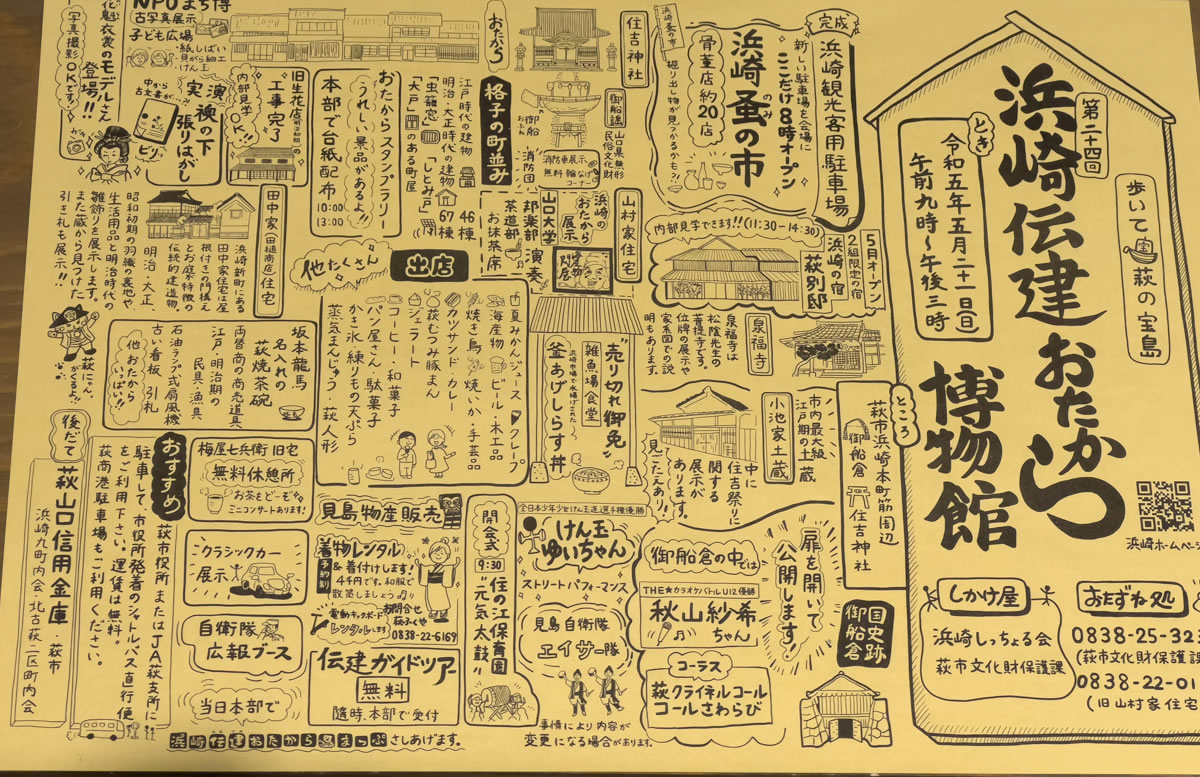 第二十四回
浜崎伝建おたから
博物館
歩いて萩の宝島
とき
令和五年五月二十一日(日)
午前九時〜午後三時
ところ
萩市浜崎本町筋周辺
御船倉
住吉神社
浜崎ホームペー
しかけ屋
浜崎しっちょる会
萩市文化財保護課
おたずね処
0838-25-32
(萩市文化財保護課
0838-22-01
(旧山村家住宅
完成
浜崎観光客用駐車場
新しい駐車場を会場に
ここだけ8時オープン
浜崎蚤の市
のみ
骨董店約20店
掘り出し物が見つかるかも♪
浜崎蚤の市
5月オープン
2組限定の宿
浜崎の宿
萩別邸
内部見学できます!!(11:30-14:30)
泉福寺
泉福寺は
松陰先生の
菩提寺です。
位牌の展示や
家系図での説
明もあります。
市内最大級
江戸期の土蔵
小池家土蔵
中に
住吉祭りに
関する
展示が
あります。
見ごたえあり。
扉を開いて
公開します!
国史跡
御船倉
御船倉の中では
THE★カラオケバトルU12優勝
秋山紗希
ちゃん
コーラス
萩クライネルコール
コールさわらび
住吉神社
御船謡
山口県無形
民俗文化財
御船
おふね
消防団
消防車展示
無料 輪なげ
コーナー
山村家住宅
浜崎の
おたから
展示
山口大学
邦楽部 演奏
茶道部
お抹茶席
"売り切れ御免"
雑魚場食堂
浜崎市場で水揚げされた
釜あげしらす丼
全日本少年少女けん玉道選手権優勝
けん玉
ゆいちゃん
ストリートパフォーマンス
見島自衛隊
エイサー隊
事情により内容が
変更になる場合があります。
おたから
格子の町並み
江戸時代の建物 46棟
明治大正時代の建物 67棟
「虫籠窓」「しとみ戸」
「大戸」のある町屋
おたからスタンプラリー
うれしい景品があるよ!!
本部で台紙配布
10:00
13:00
出店
他たくさん
夏みかんジュース クレープ
海産物 ビール・木工品
焼き鳥 焼いか・手芸品
カツサンド カレー
萩むつみ豚まん
ジェラート
コーヒー・和菓子
パン屋さん・駄菓子
かき氷 練りもの天ぷら
蒸気まんじゅう・萩人形
見島物産販売
着物レンタル
予約制
&着付けします!
44千円です。和服で
散策しましょう♪
電動キックボード
レンタルします
お問合せ
萩ふくや
0838-22-6169
開会式
9:30
"住の江保育園
元気太鼓"
伝建ガイドツアー
無料
随時、本部で受付
NPOまち博
古写真展示
子ども広場
・紙しばい
・貝がら細工
・けん玉
花魁衣裳のモデルさん
登場!!
写真撮影OKです!
実演
襖の下
張りはがし
中から
古文書が
ビリ
旧生花店
(明治初期)の
工事完了
内部見学
OK!!
田中家(田樋商店)住宅
浜崎新町にある
田中家住宅は屋
根付きの門構え
とお庭が特徴の
伝統的建造物。
明治・大正、
昭和初期の羽織の裏地や、
生活用品と明治時代の
雛飾りを展示します。
また蔵から見つけた
引き札も展示!!
萩にゃん。
がくるよ♪
坂本龍馬
名入れの
萩焼茶碗
両替商の商売道具
江戸・明治期の
民具・漁具
石油ランプ式扇風機
古い看板 引札
他おたから
いっぱい!!
梅屋七兵衛旧宅
無料休憩所
お茶をどーぞ
ミニコンサートあります!
クラシックカー
展示
自衛隊
広報ブース
当日本部で
浜崎伝建おたから惑まっぷさしあげます。
おすすめ
萩市役所またはJA萩支所に
駐車して、市役所発着のシャトルバス(直行)便
をご利用下さい。運賃は無料。
萩商港駐車場もご利用ください。
後だて
萩山口信用金庫・萩市
浜崎九町内会、北古萩一区二区町内会